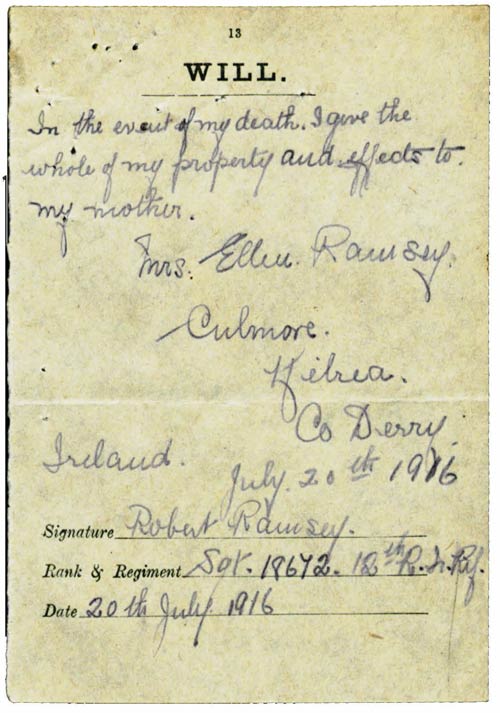 13
WILL.
In the event of my death. I give the
whole of my property and effects to
my mother.
Mrs. Ellen Ramsey.
Culmore.
Kilrea.
Co Derry.
Ireland.
July. 20th 1916
Signature Robert Ramsey.
Rank & Regiment Sgt. 18672. 12th R. Ir. Rif.
Date 20th July 1916